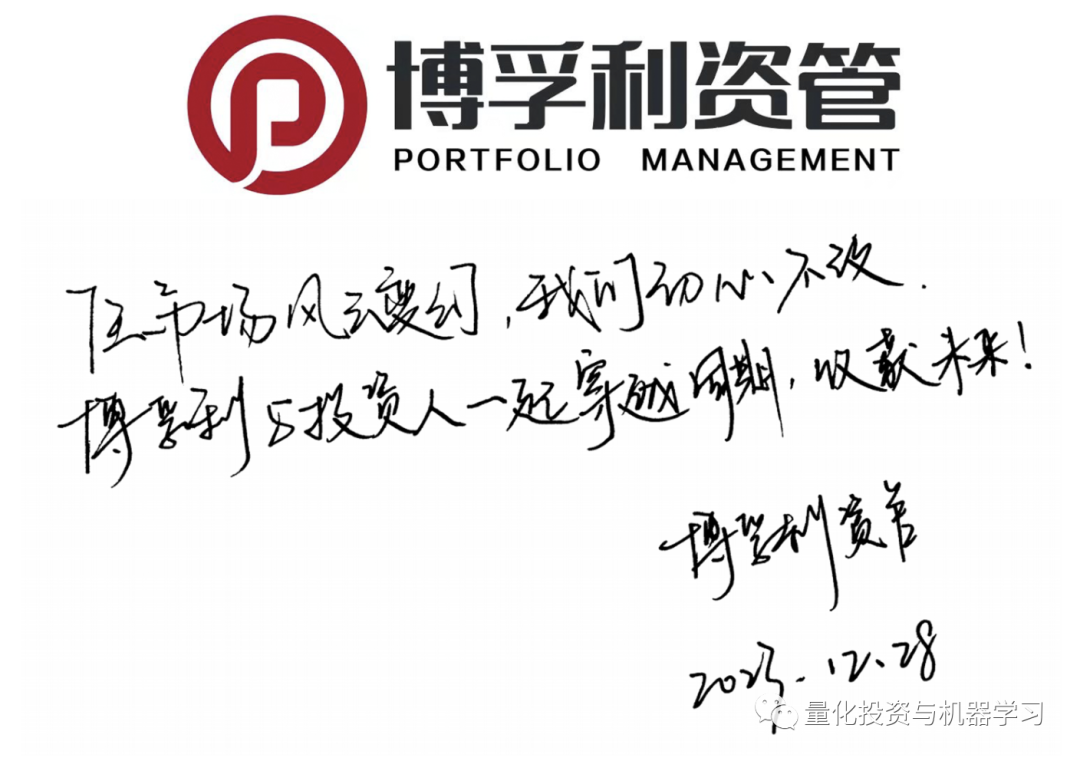 博孚利资管
PORTFOLIO MANAGEMENT
任市场风云变幻,我们初心不改.
博孚利与投资人一起穿越周期,收获未来!
博孚利资管
2023.12.28
量化投资与机器学习